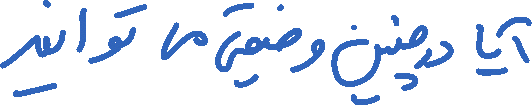 آیا در چنین وضعیتی می توانید